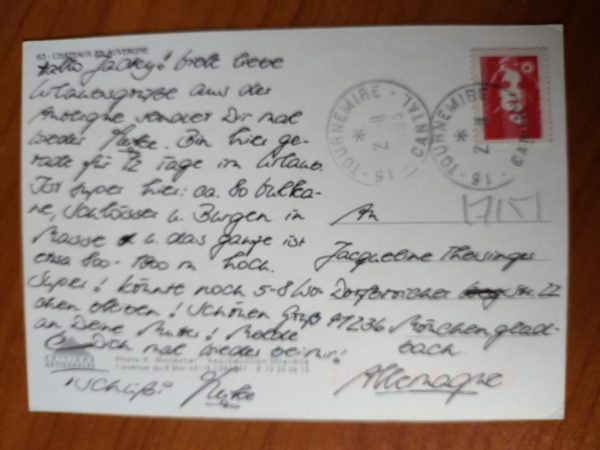 63 - CHATEAUX EN AUVERGNE
Hallo Jacky! Viele liebe
Urlaubsgrüße aus der
Auvergne sendet Dir mal
wieder Heike. Bin hier ge-
rade für 12 Tage im Urlaub.
Ist super hier: ca. 80 Vulka-
ne, Schlösser u. Burgen in
Masse u. das ganze ist
etwa 800 - 1800 m hoch.
Super! Könnte noch 5-8 Wo-
chen bleiben! Schönen Gruß
an Deine Mutter! Melde
Dich mal wieder bei mir!
Tschüßi Heike
EDITIONS
15 - TOURNEMIRE * CANTAL
15 - TOURNEMIRE * CANTAL
An
Jacqueline Theisinger
Str. 22
41236 Mönchenglad-
bach
Allemagne